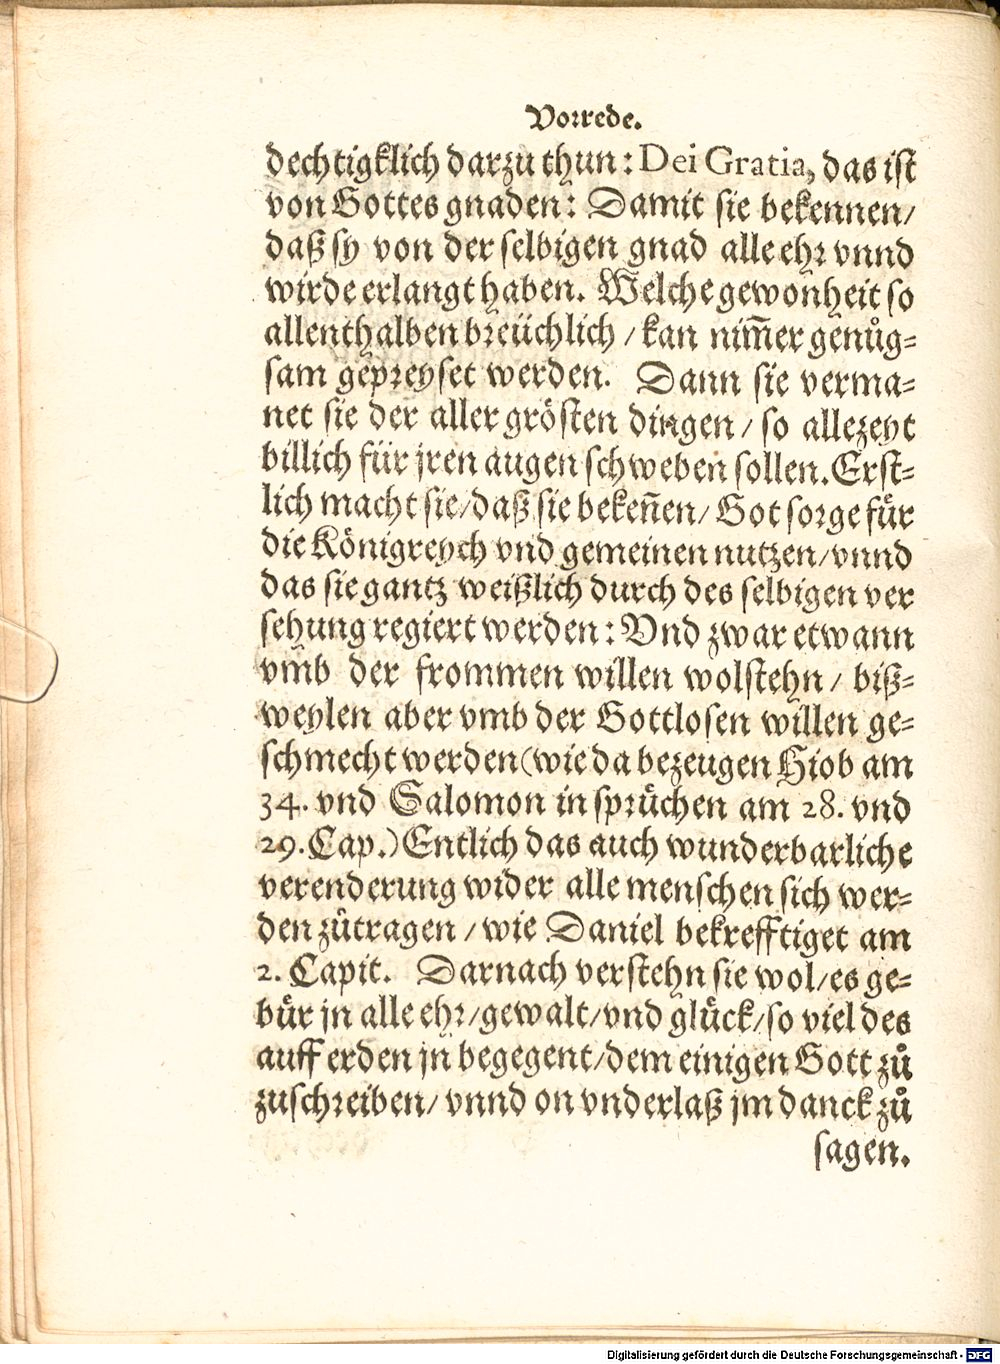 Vorrede.
dechtigklich darzu thun: Dei Gratia, das ist
von Gottes gnaden: Damit sie bekennen/
daß sy von der selbigen gnad alle ehr vnnd
wirde erlangt haben. Welche gewonheit so
allenthalben breüchlich / kan nim̃er genůg-
sam gepreyset werden. Dann sie verma-
net sie der aller grösten dingen / so allezeyt
billich für jren augen schweben sollen. Erst-
lich macht sie/daß sie bekeñen/ Got sorge für
die Königreych vnd gemeinen nutzen/vnnd
das sie gantz weißlich durch des selbigen ver
sehung regiert werden: Vnd zwar etwann
vmb der frommen willen wolstehn / biß-
weylen aber vmb der Gottlosen willen ge-
schmecht werden (wie da bezeugen Hiob am
34. vnd Salomon in sprüchen am 28. vnd
29. Cap.) Entlich das auch wunderbarliche
verenderung wider alle menschen sich wer-
den zůtragen / wie Daniel bekrefftiget am
2. Capit. Darnach verstehn sie wol/es ge-
bür jn alle ehr/gewalt/vnd glück/so viel des
auff erden jn begegent/dem einigen Gott zů
zuschreiben/ vnnd on vnderlaß jm danck zů
sagen.
Digitalisierung gefördert durch die Deutsche Forschungsgemeinschaft - DFG